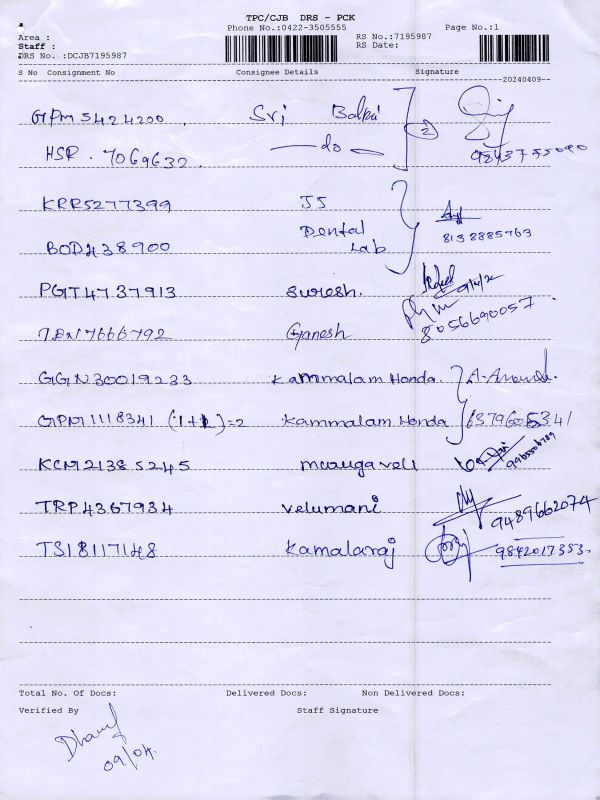 TPC/CJB DRS - PCK
Phone No.:0422-3505555 Page No.:1
Area : RS No.:7195987
Staff : RS Date:
DRS No. :DCJB7195987
S No Consignment No Consignee Details Signature
20240409
GPM 5424200 . Sri (2)
HSR . 7069632 . do 98437 55090
KRR5277399 JS
Dental 8138885763
BOD2438900 Lab
PGT4737913 Suresh.
7666792 Ganesh 8056690057
GGN30019233 Kammalam Honda. A. Anand.
GPM1118341 (1+1)=2 Kammalam Honda 6379605341
KCM21385245 murugavell
TRP4367934 Velumani 9489662074
TS18117148 Kamalaraj 9842017353.
Total No. Of Docs: Delivered Docs: Non Delivered Docs:
Verified By Staff Signature
09/04.